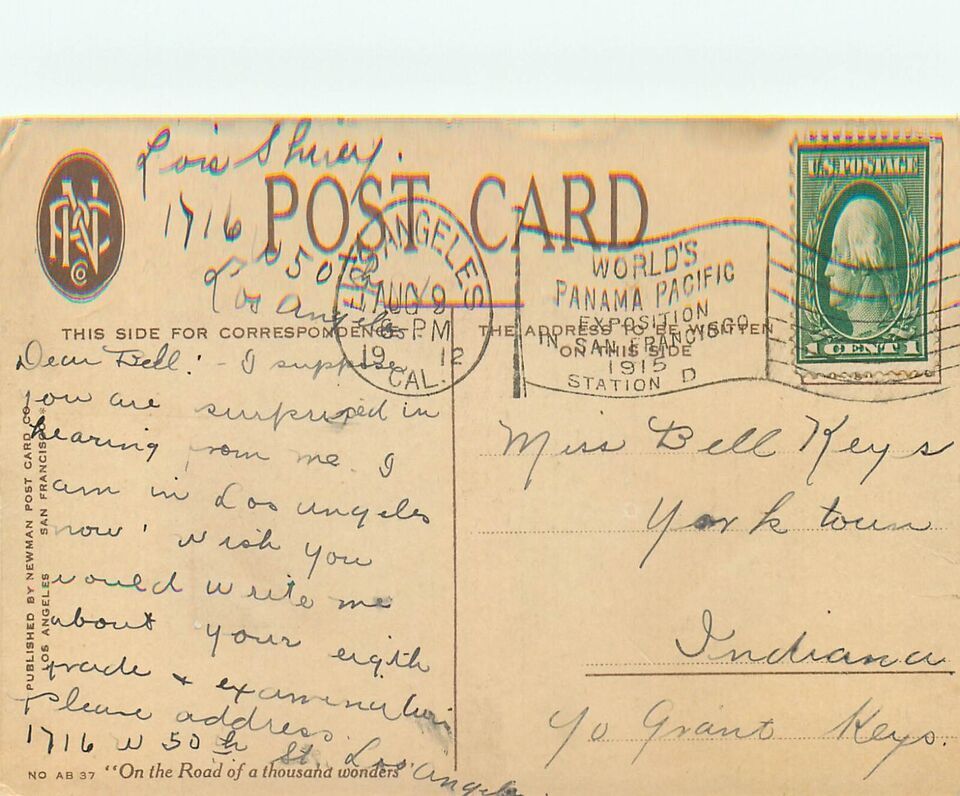 Lois Shirey.
1716 W 50th
Los Angeles
POST CARD
NPC Co
LOS ANGELES
AUG 9
6-PM
1912
CAL.
WORLD'S
PANAMA PACIFIC
EXPOSITION
IN SAN FRANCISCO
1915
STATION D
U.S. POSTAGE
1 CENT 1
THIS SIDE FOR CORRESPONDENCE
THE ADDRESS TO BE WRITTEN
ON THIS SIDE
Dear Bell: - I suppose
you are surprised in
hearing from me. I
am in Los angeles
now. wish you
would write me
about your eigth
grade & examination
Please address
1716 W 50th St. Los Angeles
Miss Bell Keys
Yorktown
Indiana
c/o Grant Keys.
PUBLISHED BY NEWMAN POST CARD CO.
LOS ANGELES SAN FRANCISCO
NO AB 37 "On the Road of a thousand wonders"